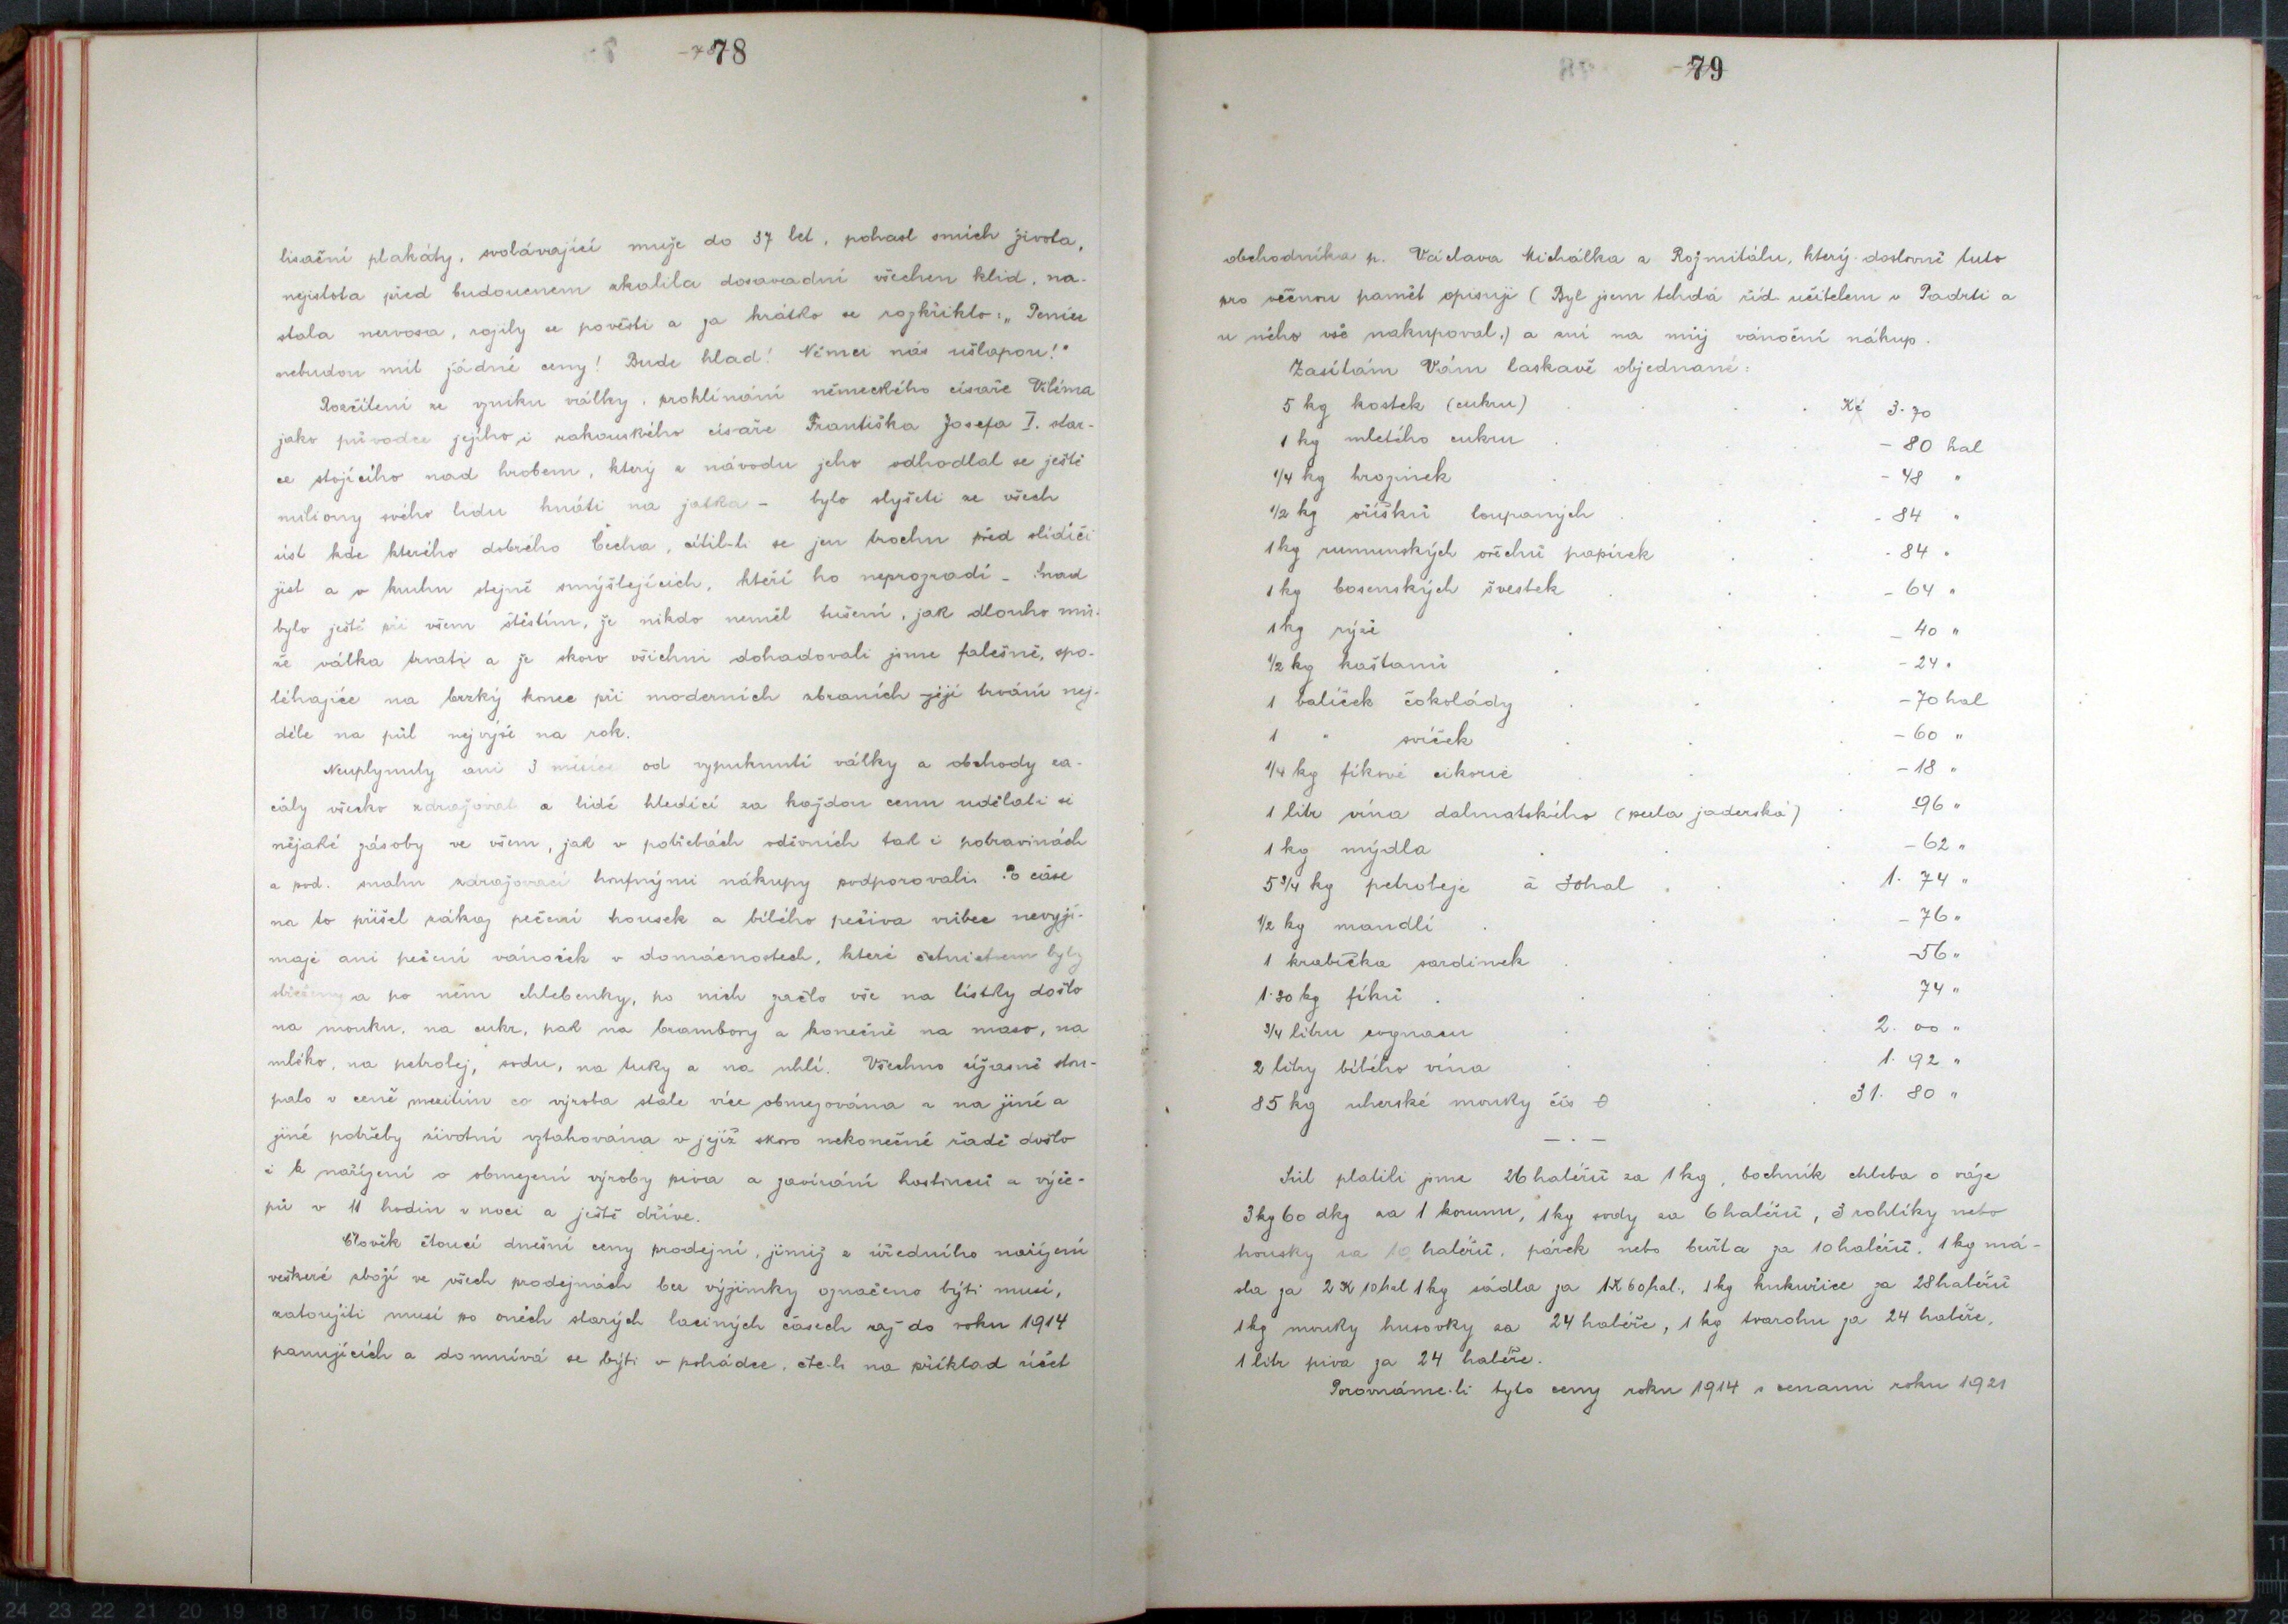 78
lisační plakáty, svolávající muže do 37 let, pohasl smích života,
nejistota před budoucnem zkalila dosavadní všechen klid, na-
stala nervosa, rojily se pověsti a za krátko se rozkřiklo: „Peníze
nebudou mít žádné ceny! Bude hlad! Němci nás ušlapou!"
Rozčilení ze vzniku války, proklínání německého císaře Viléma
jako původce jejího i rakouského císaře Františka Josefa I. star-
ce stojícího nad hrobem, který z návodu jeho odhodlal se ještě
miliony svého lidu hnáti na jatka – bylo slyšeti ze všech
úst kde kterého dobrého Čecha, cítil-li se jen trochu před slídiči
jist a v kruhu stejně smýšlejících, kteří ho neprozradí – Snad
bylo ještě při všem štěstím, že nikdo neměl tušení, jak dlouho mů-
že válka trvati a že skoro všichni dohadovali jsme falešně, spo-
léhajíce na brzký konec při moderních zbraních její trvání nej-
déle na půl nejvýše na rok.
Neuplynuly ani 3 měsíce od vypuknutí války a obchody za-
čaly všecko zdražovat a lidé hledíce za každou cenu udělati si
nějaké zásoby ve všem, jak v potřebách oděvních tak i potravinách
a pod. snahu zdražovací houfnými nákupy podporovali. Po čase
na to přišel zákaz pečení housek a bílého pečiva vůbec nevyjí-
maje ani pečení vánoček v domácnostech, které četnictvem byly
střeženy a po něm chlebenky, po nich zašlo vše na lístky došlo
na mouku, na cukr, pak na brambory a konečně na maso, na
mléko, na petrolej, sodu, na tuky a na uhlí. Všechno úžasně stou-
palo v ceně mezitím co výroba stále více obmezována a na jiné a
jiné potřeby životní vztahována v jejíž skoro nekonečné řadě došlo
i k nařízení o obmezení výroby piva a zavírání hostinců a výče-
pů v 11 hodin v noci a ještě dříve.
Člověk čtoucí dnešní ceny prodejní, jimiž z úředního nařízení
veškeré zboží ve všech prodejnách bez výjimky označeno býti musí,
zatoužiti musí po oněch starých laciných časech až do roku 1914
panujících a domnívá se býti v pohádce, čte-li na příklad účet
79
obchodníka p. Václava Michálka z Rožmitálu, který doslovně tuto
pro věčnou paměť opisuji (Byl jsem tehdá říd. učitelem v Padrti a
u něho vše nakupoval.) a zní na můj vánoční nákup.
Zasílám Vám laskavě objednané:
5 kg kostek (cukru) . . . Kč 3·70
1 kg mletého cukru . . – 80 hal
1/4 kg hrozinek . . – 48 "
1/2 kg oříšků loupaných . . – 84 "
1 kg rumunských ořechů papírek . . – 84 "
1 kg bosenských švestek . . . – 64 "
1 kg rýže . . . – 40 "
1/2 kg kaštanů . . . – 24 "
1 balíček čokolády . . . – 70 hal
1 " svíček . . . – 60 "
1/4 kg fíkové cikorie . . . – 18 "
1 litr vína dalmatského (perla jaderská) . – 96 "
1 kg mýdla . . . – 62 "
5 3/4 kg petroleje á 30hal . . . 1· 74 "
1/2 kg mandlí . . . – 76 "
1 krabička sardinek . . . – 56 "
1·30 kg fíků . . . . 74 "
3/4 litru cognacu . . . 2· 00 "
2 litry bílého vína . . . 1· 92 "
85 kg uherské mouky čís 0 . . 31· 80 "
– . –
Sůl platili jsme 26 haléřů za 1 kg, bochník chleba o váze
3 kg 60 dkg za 1 korunu, 1 kg sody za 6 haléřů, 3 rohlíky nebo
housky za 10 haléřů, párek nebo buřta za 10 haléřů. 1 kg má-
sla za 2 K 10 hal 1 kg sádla za 1 K 60 hal., 1 kg kukuřice za 28 haléřů
1 kg mouky husovky za 24 haléře, 1 kg tvarohu za 24 haléře,
1 litr piva za 24 haléře.
Porovnáme-li tyto ceny roku 1914 s cenami roku 1921